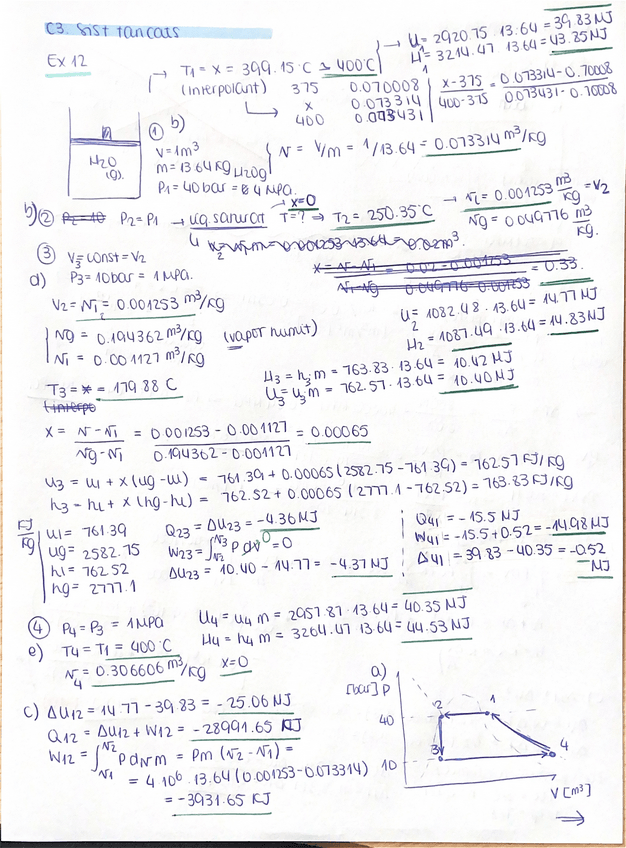 C3. Sist tancats
Ex 12
T1 = x = 399.15°C ≃ 400°C
(interpolant)
375 0.070008
x 0.073314
400 0.073431
U1 = 2920.75 · 13.64 = 39.83 MJ
H1 = 3214.47 · 13.64 = 43.85 MJ
x-375 / 400-375 = 0.073314-0.70008 / 0.073431-0.70008
H2O (g).
① b)
V = 1m³
m = 13.64 kg H2Og
P1 = 40 bar = 4 MPa.
v = V/m = 1/13.64 = 0.073314 m³/kg
b) ② P2 = P1 → liq saturat x=0 T=? ⇒ T2 = 250.35°C
→ vl = 0.001253 m³/kg = v2
vg = 0.049776 m³/kg.
③ V3 = const = V2
d) P3 = 10 bar = 1 MPa.
V2 = vl2 = 0.001253 m³/kg
vg = 0.194362 m³/kg (vapor humit)
vl = 0.001127 m³/kg
T3 = 179.88 C
U2 = 1082.48 · 13.64 = 14.77 MJ
H2 = 1087.49 · 13.64 = 14.83 MJ
H3 = h3 m = 763.83 · 13.64 = 10.42 MJ
U3 = u3 m = 762.57 · 13.64 = 10.40 MJ
x = v-vl / vg-vl = 0.001253 - 0.001127 / 0.194362 - 0.001127 = 0.00065
u3 = ul + x (ug - ul) = 761.39 + 0.00065 (2582.75 - 761.39) = 762.57 kJ/kg
h3 = hl + x (hg - hl) = 762.52 + 0.00065 (2777.1 - 762.52) = 763.83 kJ/kg
kJ/kg
ul = 761.39
ug = 2582.75
hl = 762.52
hg = 2777.1
Q23 = ΔU23 = -4.36 MJ
W23 = ∫ v2 v3 P dv 0 = 0
ΔU23 = 10.40 - 14.77 = -4.37 MJ
Q41 = -15.5 MJ
W41 = -15.5 + 0.52 = -14.98 MJ
ΔU41 = 39.83 - 40.35 = -0.52 MJ
④ P4 = P3 = 1 MPa
e) T4 = T1 = 400°C
v4 = 0.306606 m³/kg x=0
U4 = u4 m = 2957.87 · 13.64 = 40.35 MJ
H4 = h4 m = 3264.47 · 13.64 = 44.53 MJ
c) ΔU12 = 14.77 - 39.83 = -25.06 MJ
Q12 = ΔU12 + W12 = -28991.65 kJ
W12 = ∫ v1 v2 P dv m = Pm (v2 - v1) =
= 4 10⁶ · 13.64 (0.001253 - 0.073314)
= -3931.65 kJ
a)
[bar] P
40
10
2
1
3
4
V [m³]